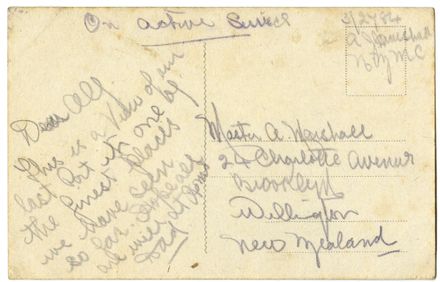 On active Service
3/2784
A J Marshall
N Z M C
Dear Alf
this is a View of our
last Port it one by
the finest places
we have seen
so far.
are well at home
Dad
Master A Marshall
24 Charlotte Avenue
Brooklyn
Wellington
New Zealand